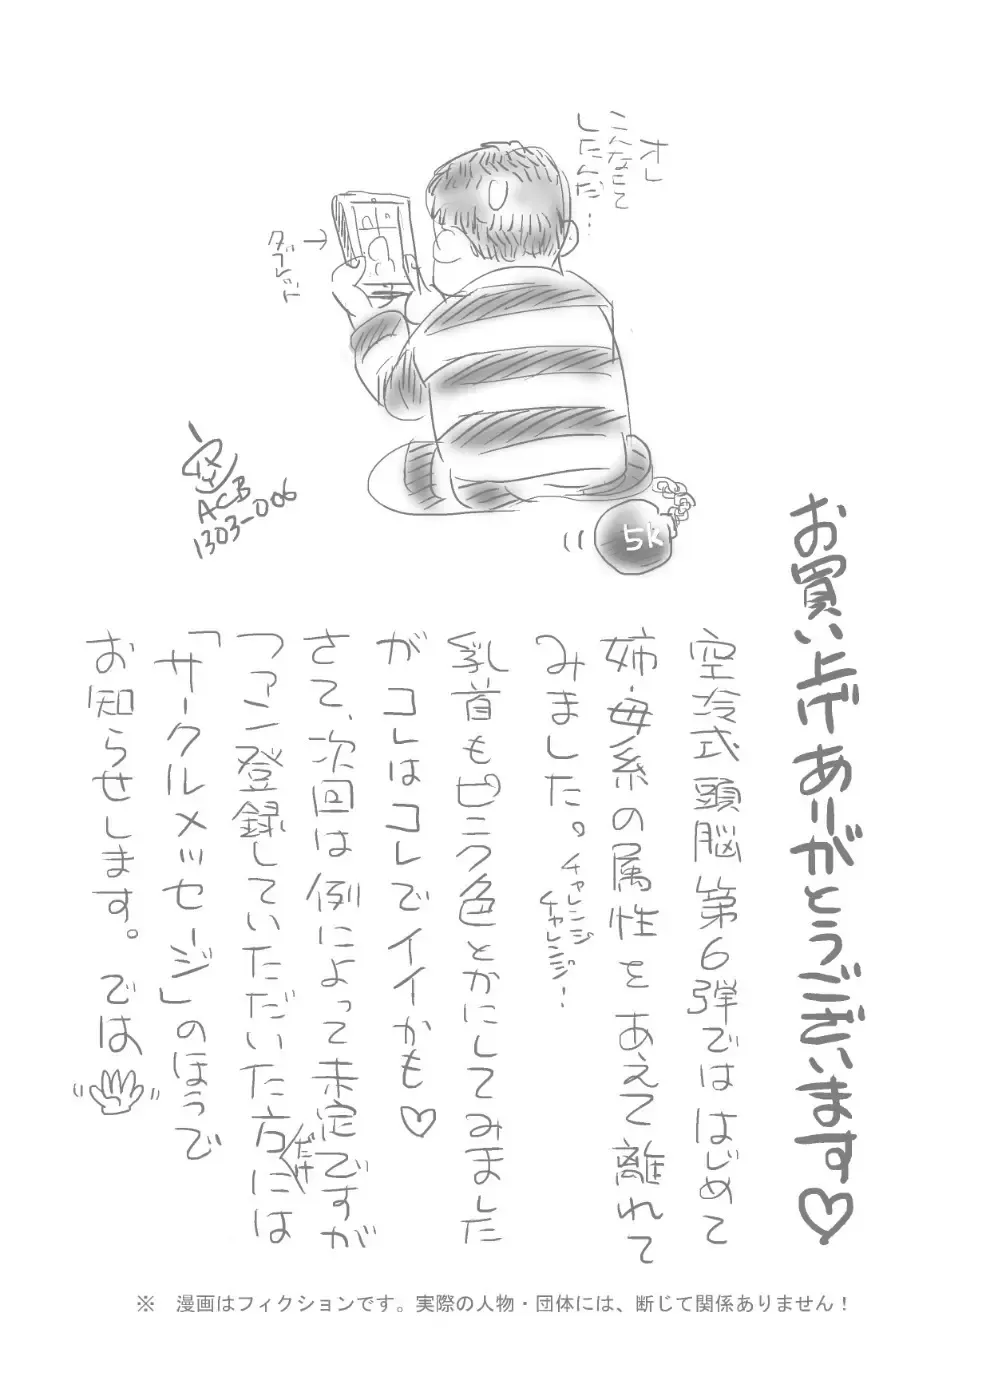 オレ
こんなことして
したんだ…
タブレット
→
空
ACB
1303-006
5k
お買い上げありがとうございます♡
空冷式頭脳第6弾でははじめて
姉・母系の属性をあえて離れて
みました。チャレンジチャレンジ!
乳首もピンク色とかにしてみました
がコレはコレでイイかも♡
さて、次回は例によって未定ですが
ファン登録していただいた方にはだけ
「サークルメッセージ」のほうで
お知らせします。では、
※ 漫画はフィクションです。実際の人物・団体には、断じて関係ありません!